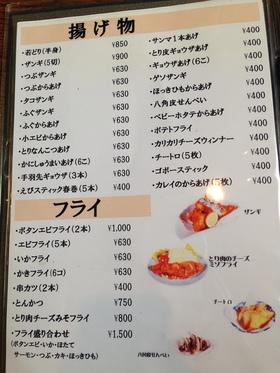 揚げ物
・若どり(半身) ¥850
・ザンギ(5切) ¥900
・つぶザンギ ¥630
・つぶからあげ ¥630
・タコザンギ ¥630
・ふぐザンギ ¥630
・ふぐからあげ ¥630
・小エビからあげ ¥630
・とりなんこつあげ ¥630
・かにしゅうまいあげ(6こ) ¥630
・手羽先ギョウザ(3本) ¥630
・えびスティック春巻(5本) ¥400
・サンマ1本あげ ¥400
・とり皮ギョウザあげ ¥400
・ギョウザあげ(6こ) ¥400
・ゲソザンギ ¥400
・ほっきひもからあげ ¥400
・八角皮せんべい ¥400
・ベビーホタテからあげ ¥400
・ポテトフライ ¥400
・カリカリチーズウィンナー ¥400
・チートロ(5枚) ¥400
・ゴボースティック ¥400
・カレイのからあげ(5枚) ¥400
フライ
・ボタンエビフライ(2本) ¥1,000
・エビフライ(5本) ¥630
・いかフライ ¥630
・かきフライ(6コ) ¥630
・串カツ(2本) ¥400
・とんかつ ¥750
・とり肉チーズみそフライ ¥800
・フライ盛り合わせ ¥1,500
(ボタンエビ・いか・ほたて
サーモン・つぶ・カキ・ほっきひも)
ザンギ
とり肉のチーズ
ミソフライ
チートロ
八角皮せんべい